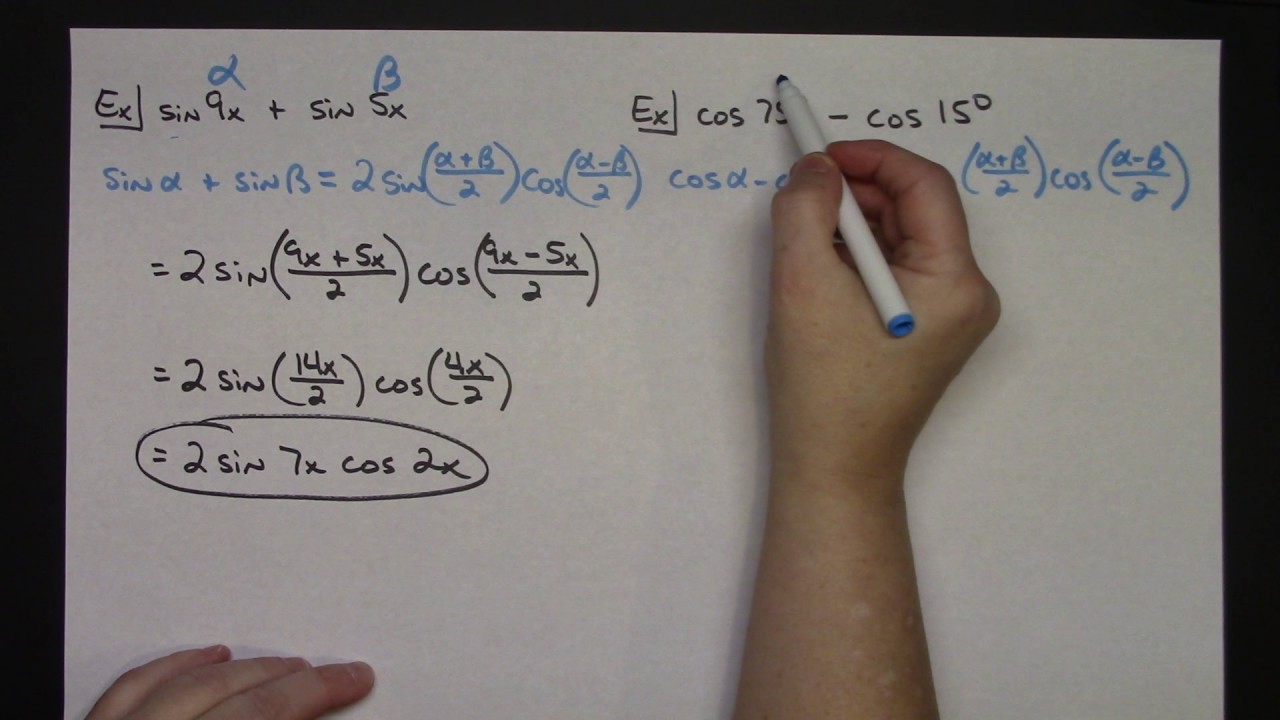 α β
Ex] sin 9x + sin 5x
sin α + sin β = 2 sin((α+β)/2) cos((α-β)/2)
= 2 sin((9x + 5x)/2) cos((9x - 5x)/2)
= 2 sin(14x/2) cos(4x/2)
= 2 sin 7x cos 2x
Ex] cos - cos 15°
cos α - ((α+β)/2) cos((α-β)/2)